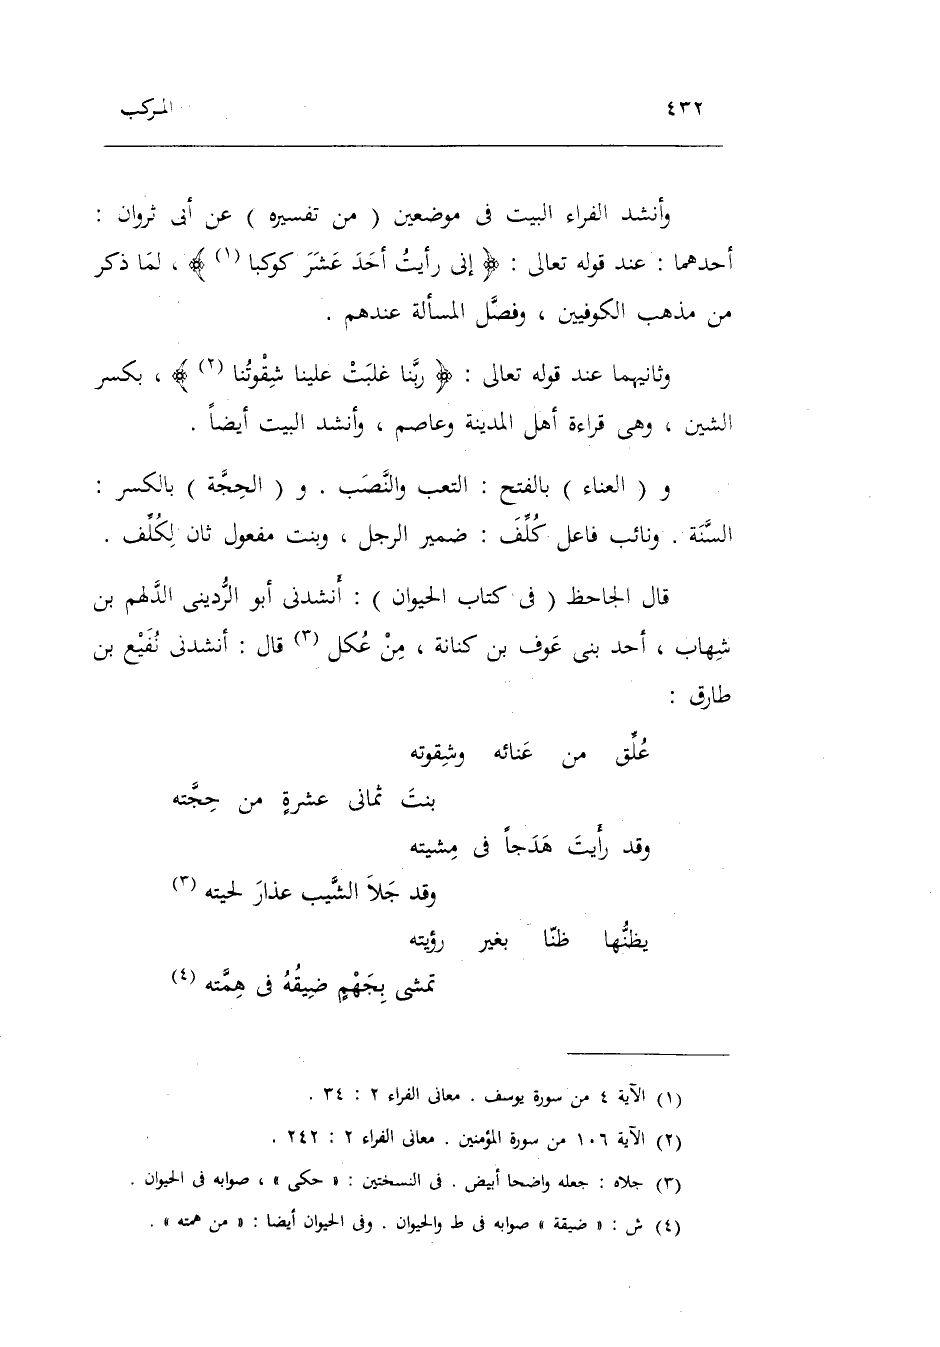 ٤٣٢ المركب
وأنشد الفراء البيت فى موضعين ( من تفسيره ) عن أبى ثروان :
أحدهما : عند قوله تعالى : ﴿ إنى رأيتُ أحَدَ عَشَرَ كوكبا (١) ﴾ ، لمَا ذكر
من مذهب الكوفيين ، وفصَّل المسألة عندهم .
وثانيهما عند قوله تعالى : ﴿ ربَّنا غلبَتْ علينا شِقْوتُنا (٢) ﴾ ، بكسر
الشين ، وهى قراءة أهل المدينة وعاصم ، وأنشد البيت أيضاً .
و ( العناء ) بالفتح : التعب والنَّصَب . و ( الحِجَّة ) بالكسر :
السَّنَة . ونائب فاعل كُلِّفَ : ضمير الرجل ، وبنت مفعول ثان لِكُلِّف .
قال الجاحظ ( فى كتاب الحيوان ) : أَنشدنى أبو الرُّدينى الدَّلهم بن
شِهاب ، أحد بنى عَوف بن كنانة ، مِنْ عُكل (٣) قال : أنشدنى نُفَيْع بن
طارق :
عُلِّق من عَنائه وشِقوته
بنتَ ثمانى عشرةٍ من حِجَّته
وقد رأَيتَ هَدَجاً فى مِشيته
وقد جَلاَ الشَّيب عذارَ لحيته (٣)
يظنُّها ظنّا بغير رؤيته
تمشى بِجَهْمٍ ضِيقُهُ فى هِمَّته (٤)
(١) الآية ٤ من سورة يوسف . معانى الفراء ٢ : ٣٤ .
(٢) الآية ١٠٦ من سورة المؤمنين . معانى الفراء ٢ : ٢٤٢ .
(٣) جلاه : جعله واضحا أبيض . فى النسختين : « حكى » ، صوابه فى الحيوان .
(٤) ش : « ضيقة » صوابه فى ط والحيوان . وفى الحيوان أيضا : « من همته » .